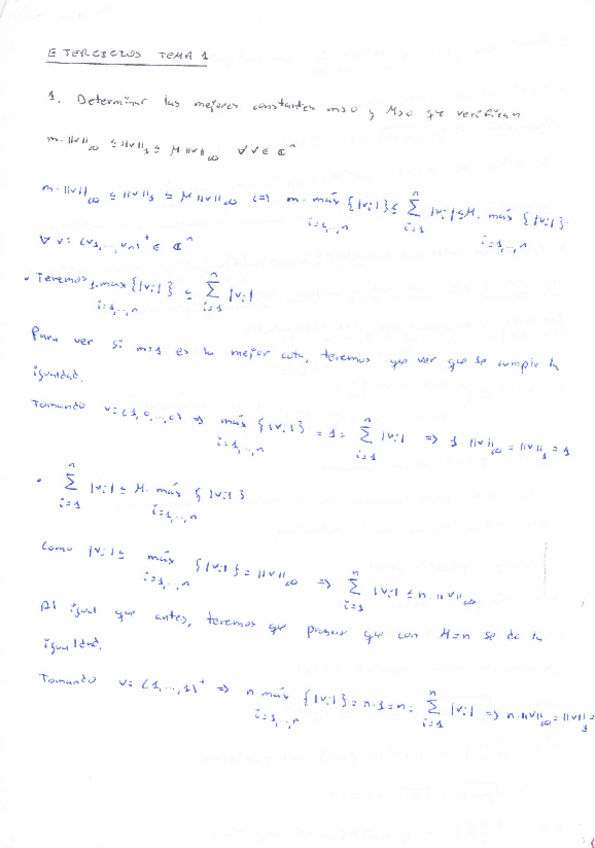 EJERCICIOS TEMA 1
1. Determinar las mejores constantes m>0 y M>0 que verifican
m·||v||∞ ≤ ||v||₁ ≤ M ||v||∞ ∀ v ∈ ℂⁿ
m·||v||∞ ≤ ||v||₁ ≤ M ||v||∞ (=) m· máx {|vi|} ≤ Σ |vi| ≤ M· máx {|vi|}·
i=1,..,n i=1 n i=1,..,n
∀ v = (v1,..., vn)ᵗ ∈ ℂⁿ
• Tenemos 1·máx {|vi|} ≤ Σ |vi|
i=1,..,n i=1 n
Para ver si m=1 es la mejor cota, tenemos que ver que se cumple la
igualdad.
Tomando v=(1,0,...,0) => máx {|vi|} = 1 = Σ |vi| => 1·||v||∞ = ||v||₁ = 1
i=1,..,n i=1 n
• Σ |vi| ≤ M· máx {|vi|}
i=1 n i=1,..,n
Como |vi| ≤ máx {|vi|} = ||v||∞ => Σ |vi| ≤ n ||v||∞
i=1,..,n i=1 n
Al igual que antes, tenemos que probar que con M=n se da la
igualdad.
Tomando v=(1,...,1)ᵗ => n máx {|vi|} = n·1 = n = Σ |vi| => n·||v||∞ = ||v||₁ =
i=1,..,n i=1 n